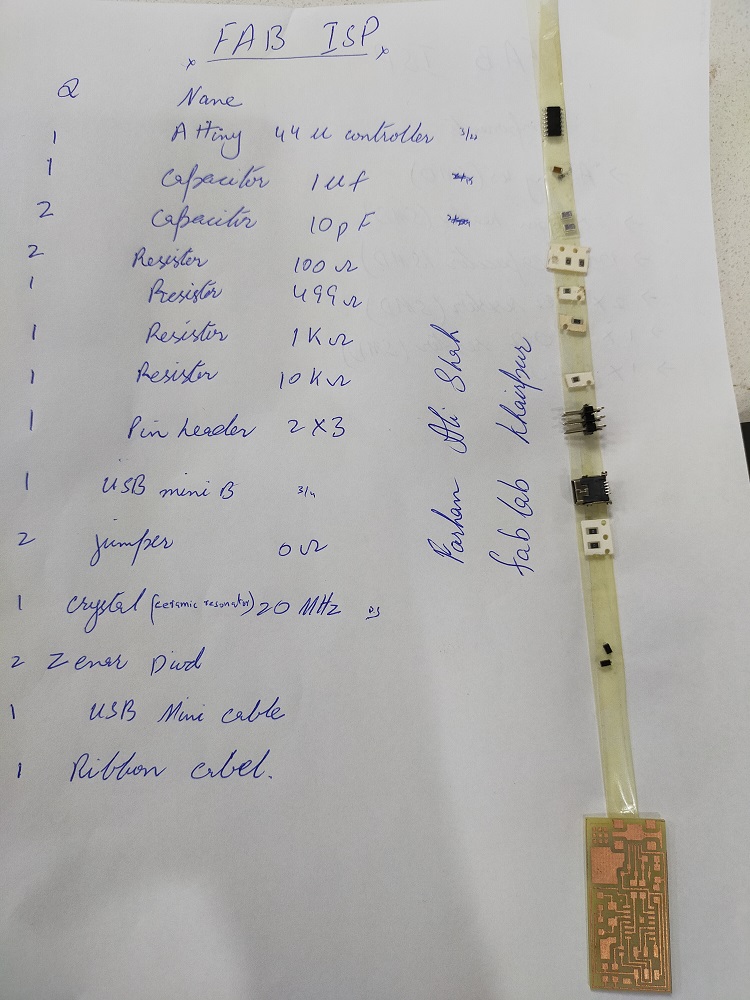 FAB ISP
Q Name
1 ATtiny 44 u controller
1 Capacitor 1uf
2 Capacitor 10pF
2 Resister 100Ω
1 Resister 499Ω
1 Resister 1KΩ
1 Resister 10KΩ
1 Pin header 2X3
1 USB mini B
2 jumper 0Ω
1 Crystal (ceramic resonator) 20 MHz
2 Zenar Diod
1 USB Mini cable
1 Ribbon cabel.
Farhan Ali Shah
Fab lab Khairpur